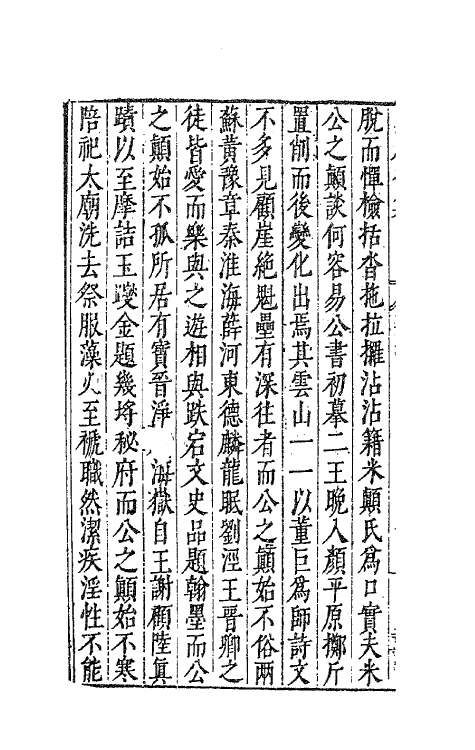 脫而憚檢括沓拖拉攞沾沾籍米顛氏爲口實夫米
公之顛談何容易公書初摹二王晚入顏平原擲斤
置削而後變化出焉其雲山一一以董巨爲師詩文
不多見顧崖絕魁壘有深往者而公之顛始不俗兩
蘇黃豫章秦淮海薛河東德麟龍眠劉涇王晉卿之
徒皆愛而樂與之遊相與跌宕文史品題翰墨而公
之顛始不孤所居有寶晉淨 海嶽自王謝顧陸真
蹟以至摩詰玉躞金題幾埒秘府而公之顛始不寒
陪祀太廟洗去祭服藻火至褫職然潔疾淫性不能